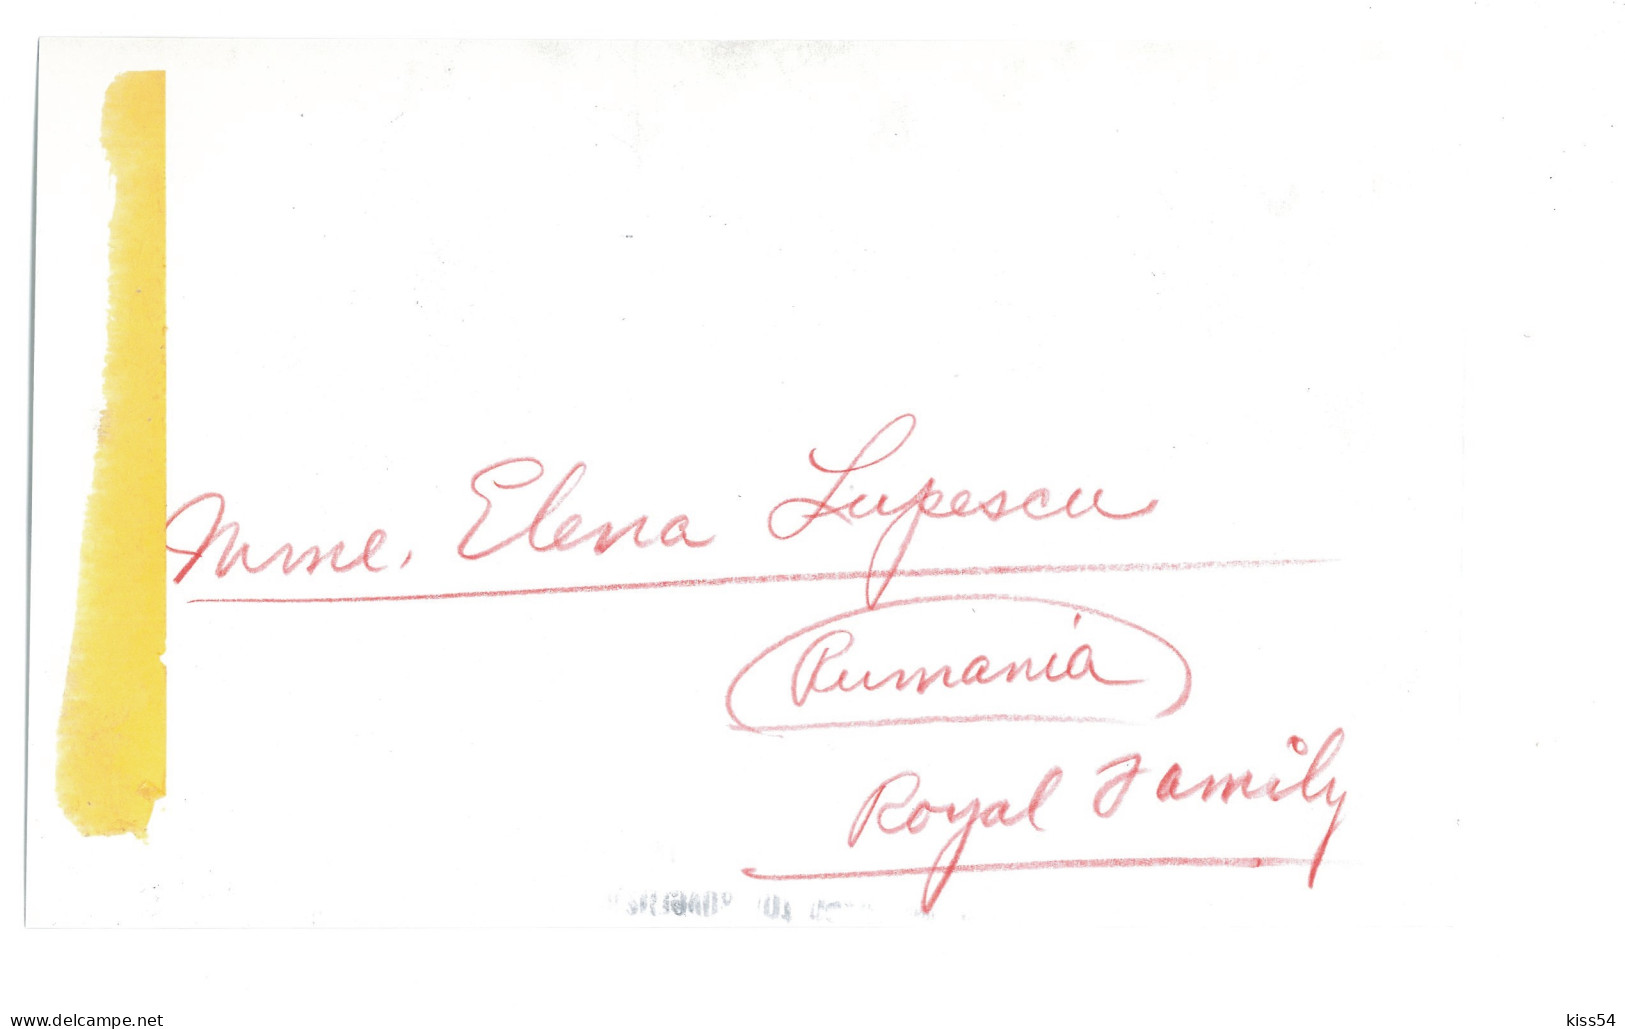 Mme. Elena Lupescu
Rumania
Royal Family
www.delcampe.net
kiss54